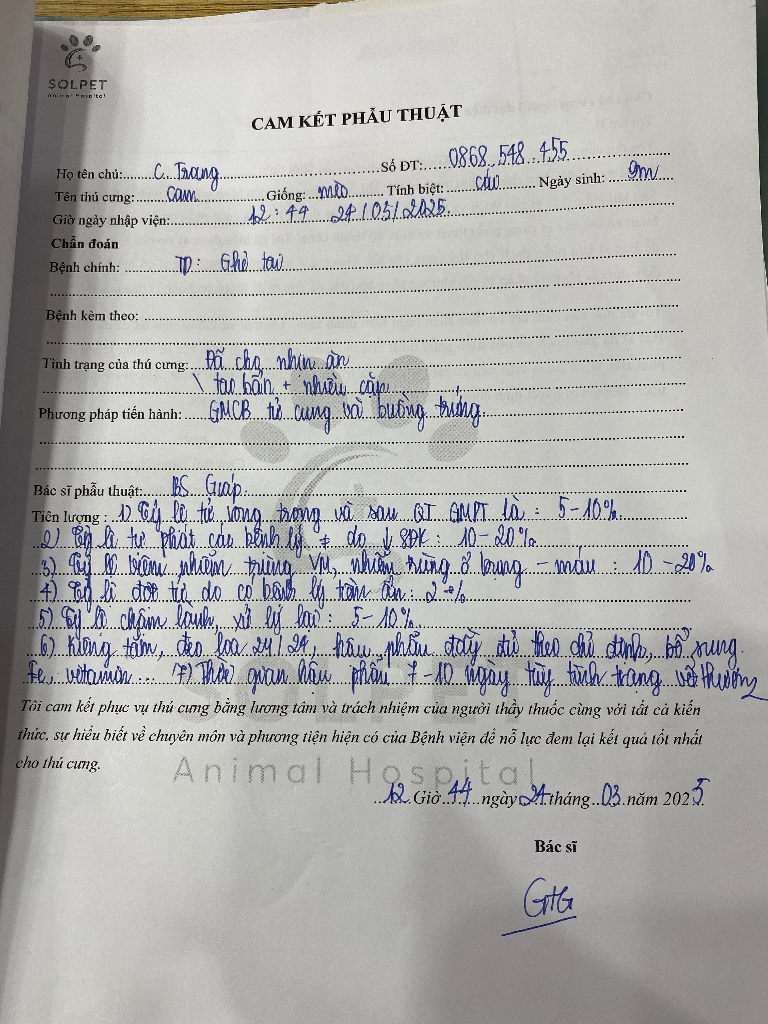 SOLPET
Animal Hospital
CAM KẾT PHẪU THUẬT
Họ tên chủ: C. Trang Số ĐT: 0868 548 455
Tên thú cưng: Cam Giống: mèo Tính biệt: cái Ngày sinh: 9m
Giờ ngày nhập viện: 12:44 24/03/2025
Chẩn đoán
Bệnh chính: TD: Ghẻ tai
Bệnh kèm theo:
Tình trạng của thú cưng: Đã cho nhịn ăn
\ tai bẩn + nhiều cặn
Phương pháp tiến hành: GMCB tử cung và buồng trứng
Bác sĩ phẫu thuật: BS Giáp
Tiên lượng: 1) Tỷ lệ tử vong trong và sau QT GMPT là: 5-10%
2) Tỷ lệ tự phát các bệnh lý ≠ do ↓ SĐK: 10-20%
3) Tỷ lệ viêm nhiễm trùng VM, nhiễm trùng ổ bụng - máu: 10-20%
4) Tỷ lệ đột tử do có bệnh lý tiềm ẩn: 2-%
5) Tỷ lệ chậm lành, xử lý lại: 5-10%
6) Không tắm, đeo loa 24/24, hậu phẫu đầy đủ theo chỉ định, bổ sung
Fe, vitamin... 7) Thời gian hậu phẫu 7-10 ngày tùy tình trạng vết thương
Tôi cam kết phục vụ thú cưng bằng lương tâm và trách nhiệm của người thầy thuốc cùng với tất cả kiến
thức, sự hiểu biết về chuyên môn và phương tiện hiện có của Bệnh viện để nỗ lực đem lại kết quả tốt nhất
cho thú cưng.
Animal Hospital
12 Giờ 44 ngày 24 tháng 03 năm 2025
Bác sĩ